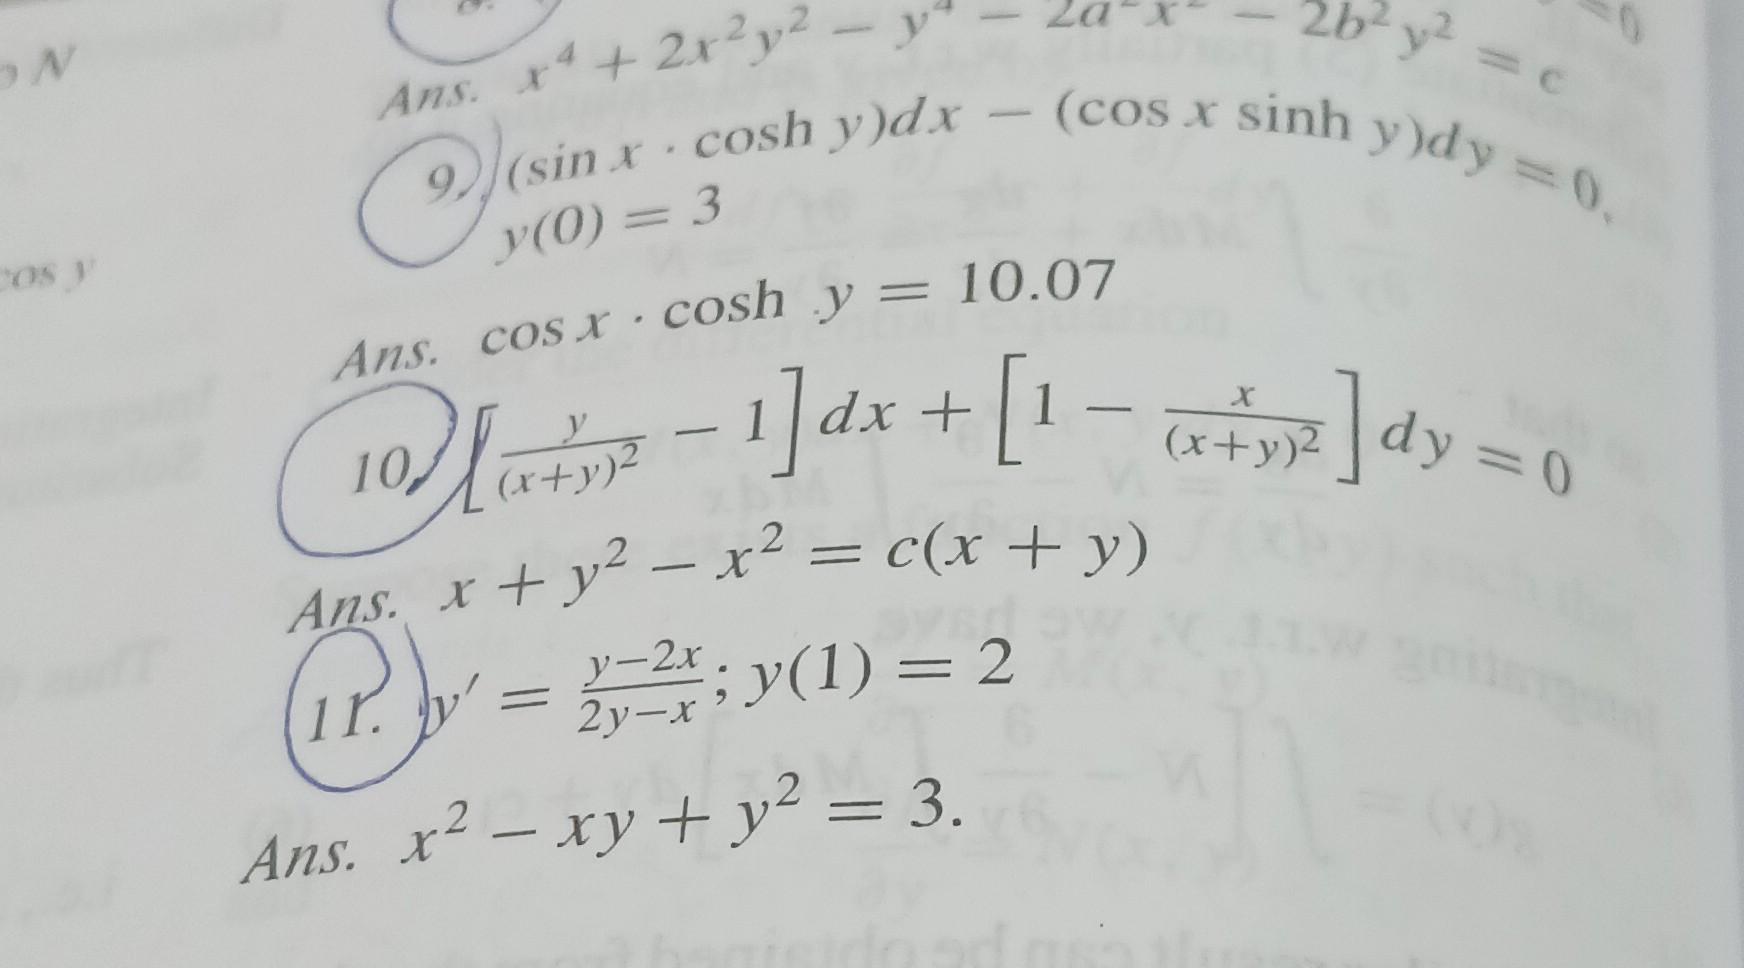 N
Ans. x⁴ + 2x²y² − y⁴ − 2a²x² − 2b²y² = c
9. (sin x · cosh y)dx − (cos x sinh y)dy = 0,
y(0) = 3
cos y
Ans. cos x · cosh y = 10.07
10. [y/(x+y)² − 1] dx + [1 − x/(x+y)²] dy = 0
Ans. x + y² − x² = c(x + y)
11. y′ = (y−2x)/(2y−x); y(1) = 2
Ans. x² − xy + y² = 3.